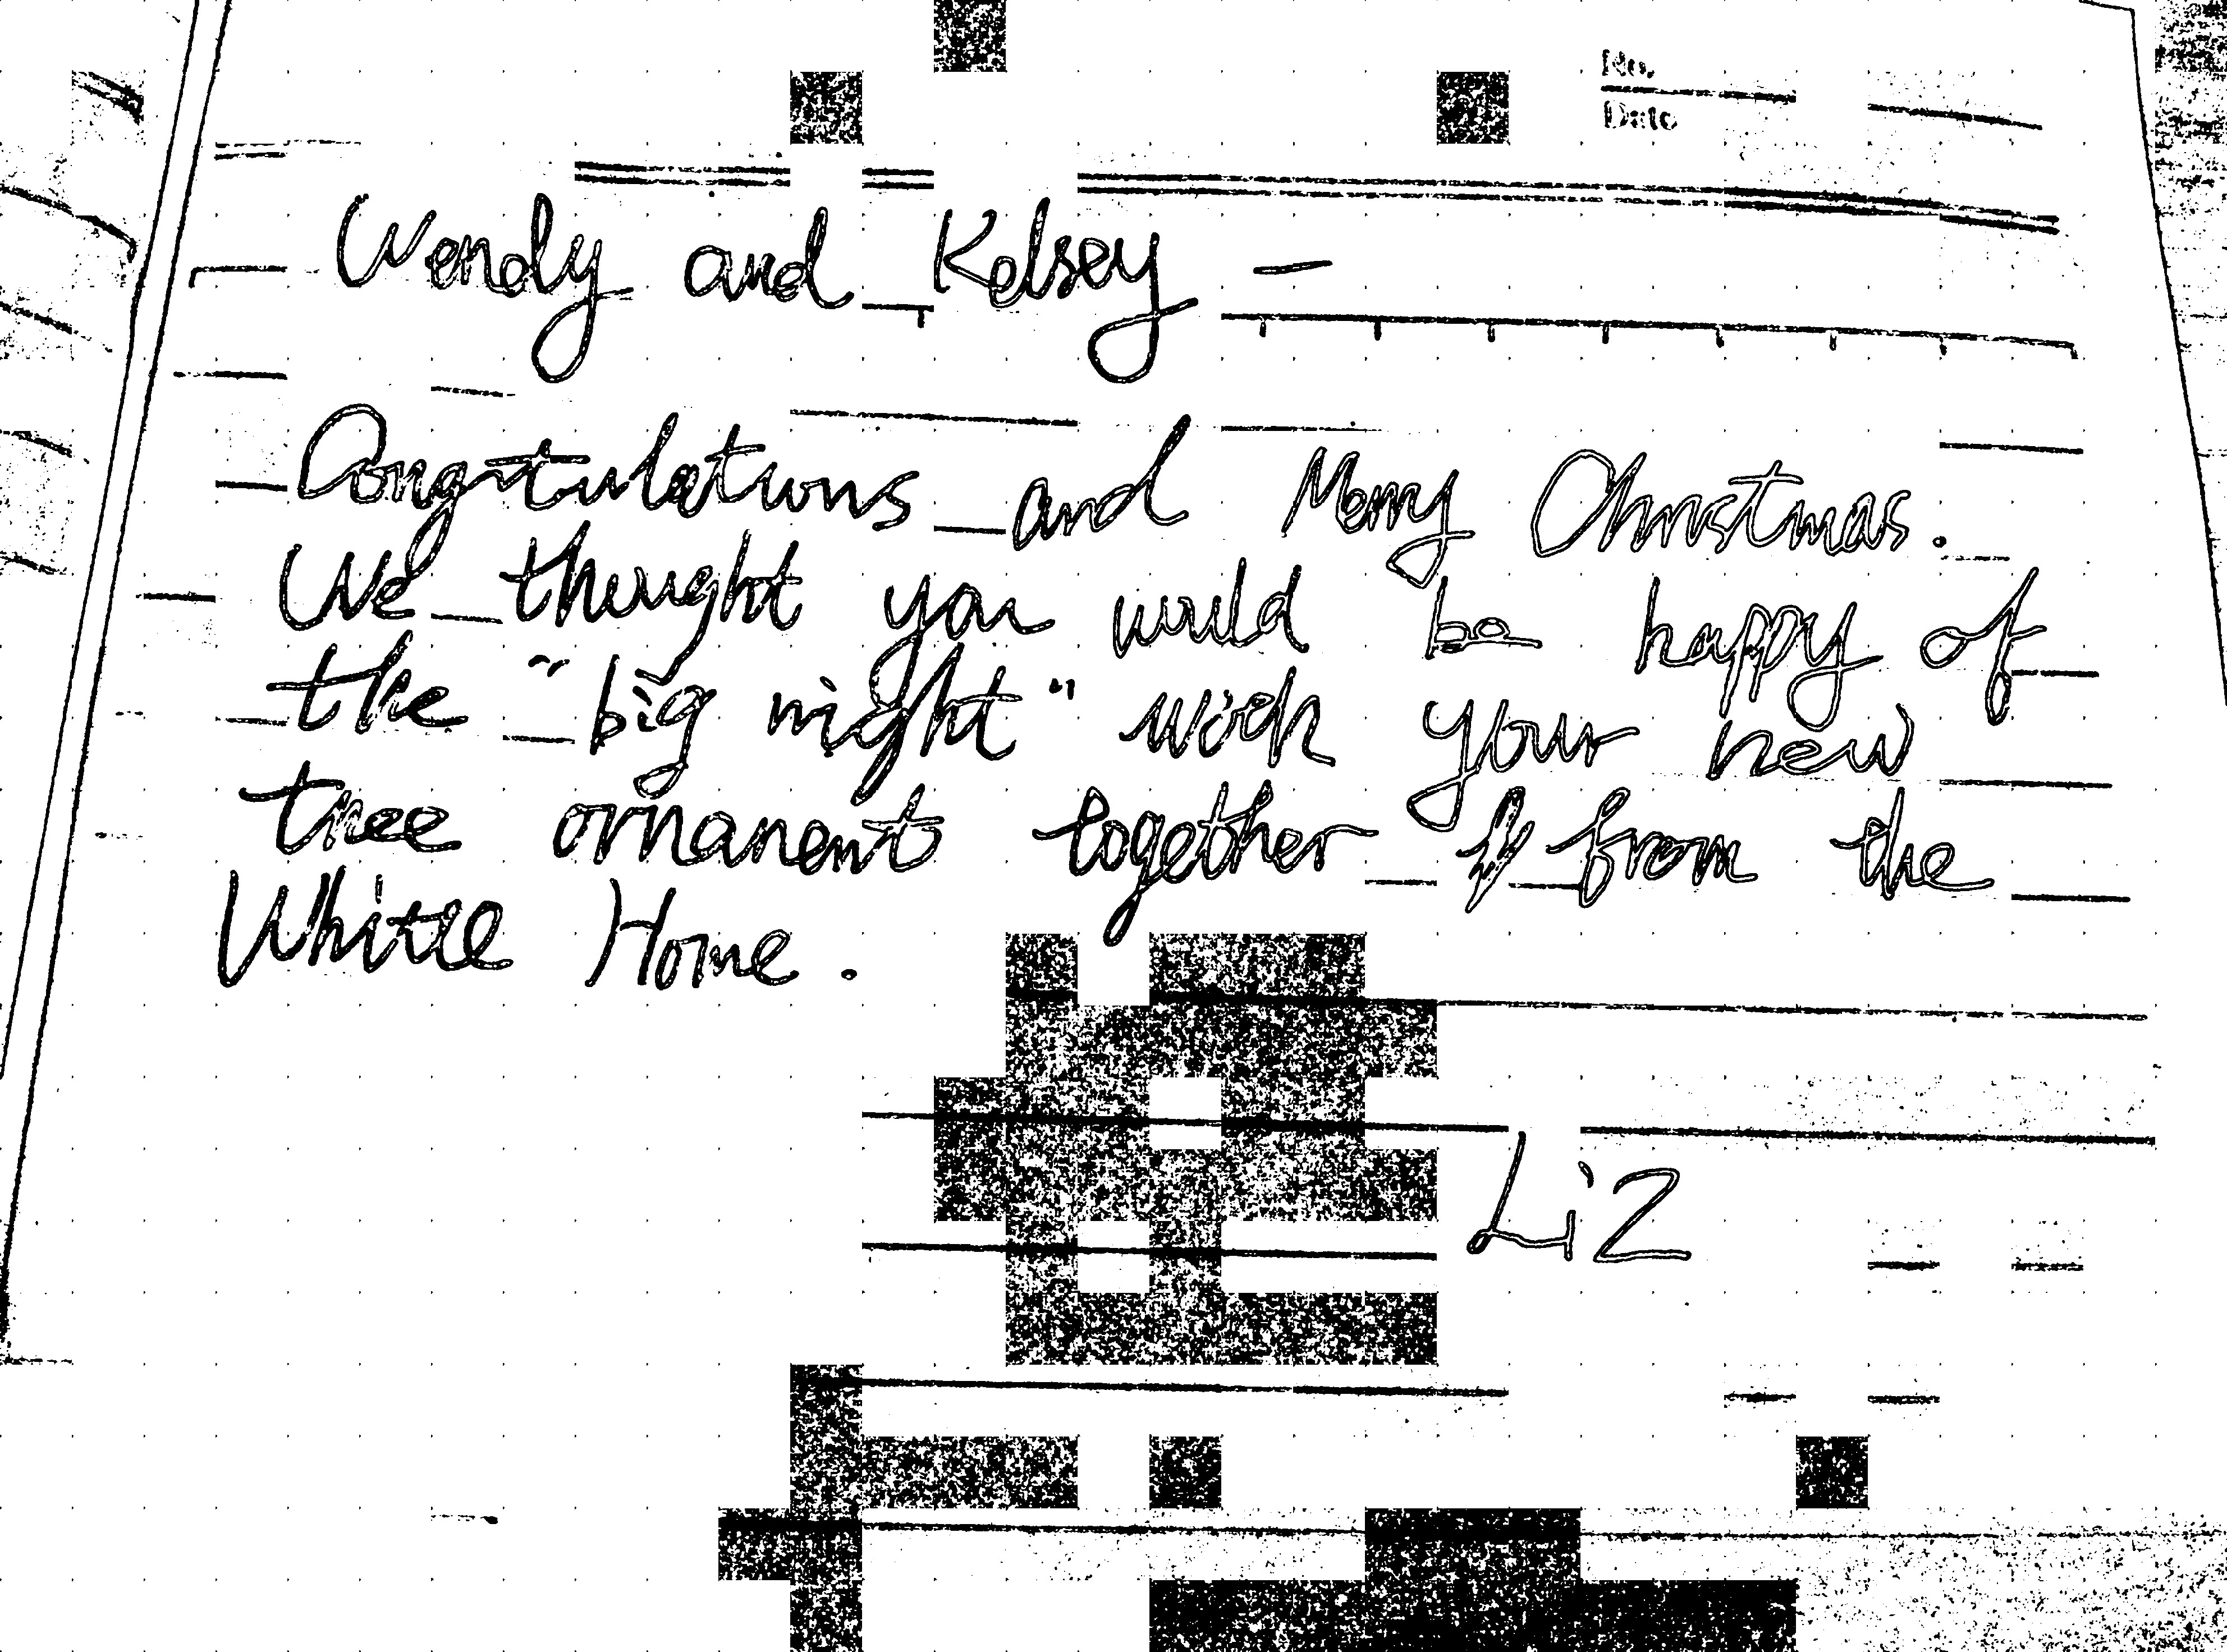 No.
Date
Wendy and Kelsey —
Congratulations and Merry Christmas.
We thought you would be happy of
the "big night" with your new
tree ornanent together from the
White Home.
Liz